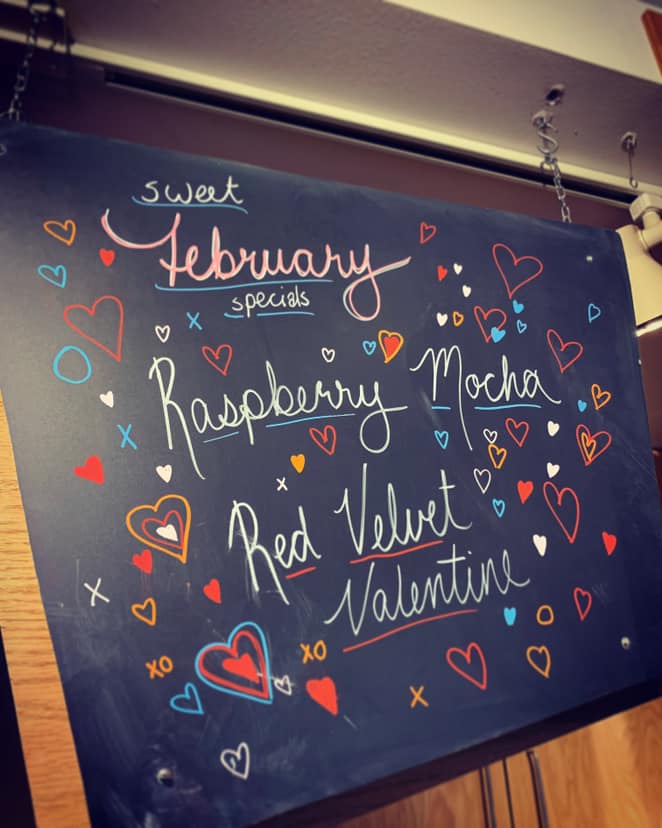 sweet
February
specials
X
Raspberry Mocha
X
X
Red Velvet
Valentine
X
XO
XO
X